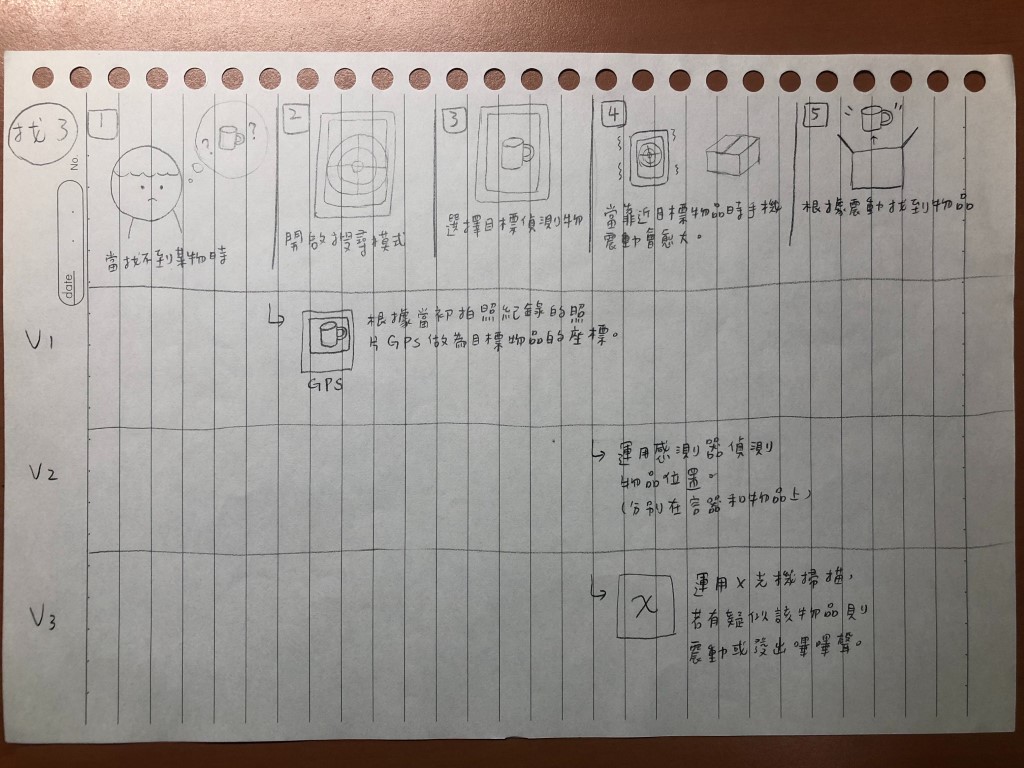 找 3
No.
date
1
? ?
當找不到某物時
2
開啟搜尋模式
3
選擇目標偵測物
4
當靠近目標物品時手機
震動會愈大。
5
根據震動找到物品
V1
GPS
根據當初拍照紀錄的照
片GPS做為目標物品的座標。
V2
運用感測器偵測
物品位置。
(分別在容器和物品上)
V3
X
運用X光機掃描,
若有疑似該物品則
震動或發出嗶嗶聲。